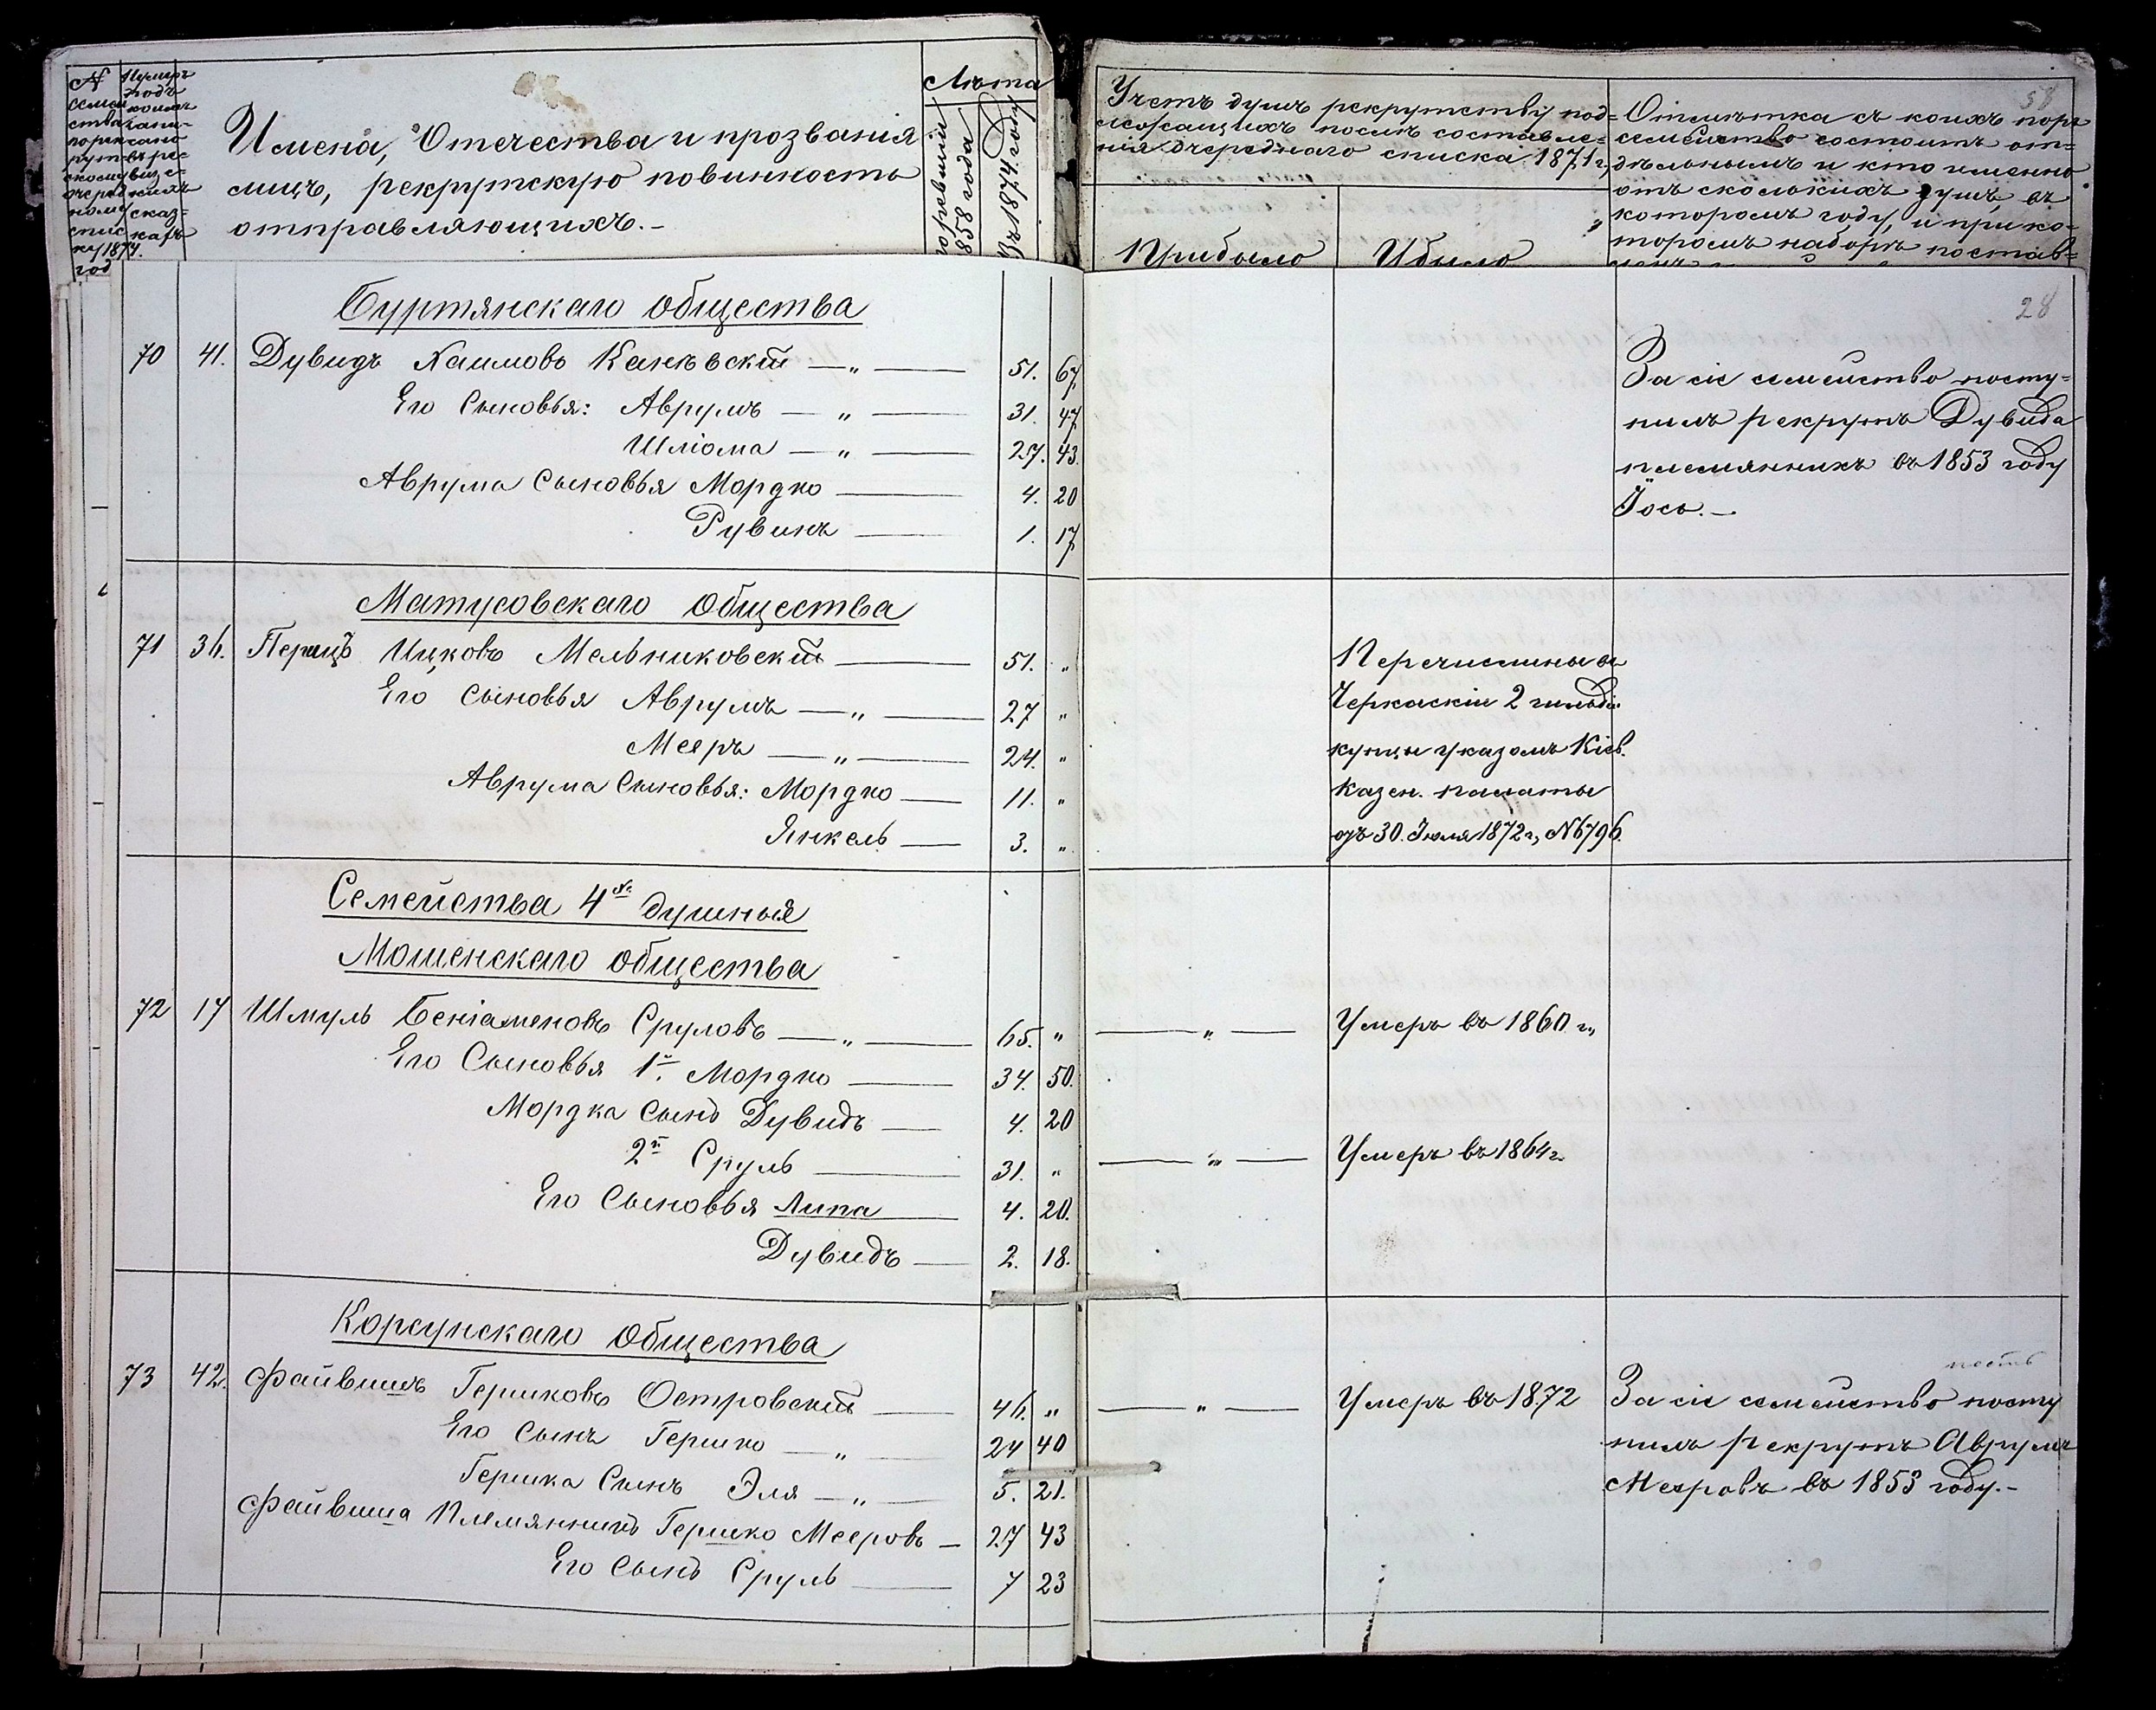 №
семей
ства
по рек
рут
скому
очеред
ному
спис
ку 1874.
год
Нумеръ
подъ
коимъ
запи-
сано
въ ре-
виз-
скихъ
сказ-
кахъ
Имена, Отечества и прозванія
лицъ, рекрутскую повинность
отправляющихъ.-
Лѣта
по ревизіи
1858 года
Въ 1874 году
Учетъ душъ рекрутству под=
лежащихъ послѣ составле=
нія очереднаго списка 1871 г.
Прибыло
Убыло
58
Отмѣтка съ коихъ поръ
семейство состоитъ от=
дѣльнымъ и кто именно
отъ сколькихъ душъ, въ
которомъ году, и при ко=
торомъ наборѣ постав=
28
Буртянскаго общества
70 41. Дувидъ Хаимовъ Каневскій — „ — 51. 67.
Его Сыновья: Аврумъ — „ — 31. 47.
Шліома — „ — 27. 43.
Аврума Сыновья Мордко — 4. 20
Рувинъ — 1. 17.
За сіе семейство посту=
пилъ рекрутъ Дувида
племянникъ въ 1853 году
Іось.-
Матусовскаго Общества
71 36. Перецъ Ицковъ Мельниковскій — 51. „
Его Сыновья Аврумъ — „ — 27 „
Мееръ — „ — 24. „
Аврума Сыновья: Мордко — 11. „
Янкель — 3. „
Перечислены въ
Черкаскіи 2 гильдіи
купцы указомъ Кіев.
Казен. палаты
отъ 30. Іюля 1872 г., №6796.
Семейства 4х душныя
Мошенскаго общества
72 17 Шмуль Беніаменовъ Сруловъ — „ — 65. „ — „ — Умеръ въ 1860 г.,
Его Сыновья 1й. Мордко — 34. 50.
Мордка Сынъ Дувидъ — 4. 20
2й Сруль — 31. „ — „ — Умеръ въ 1864 г.
Его Сыновья Липа — 4. 20.
Дувидъ — 2. 18.
Корсунскаго Общества
73 42. Файвишъ Гершковъ Островскій — 46. „ — „ — Умеръ въ 1872
Его Сынъ Гершко — „ 24 40
Гершка Сынъ Эля — „ — 5. 21.
Файвиша Племянникъ Гершко Мееровъ — 27 43
Его Сынъ Сруль — 7 23
За сіе семейство посту
пилъ рекрутъ Аврумъ
Мееровъ въ 1853 году.-